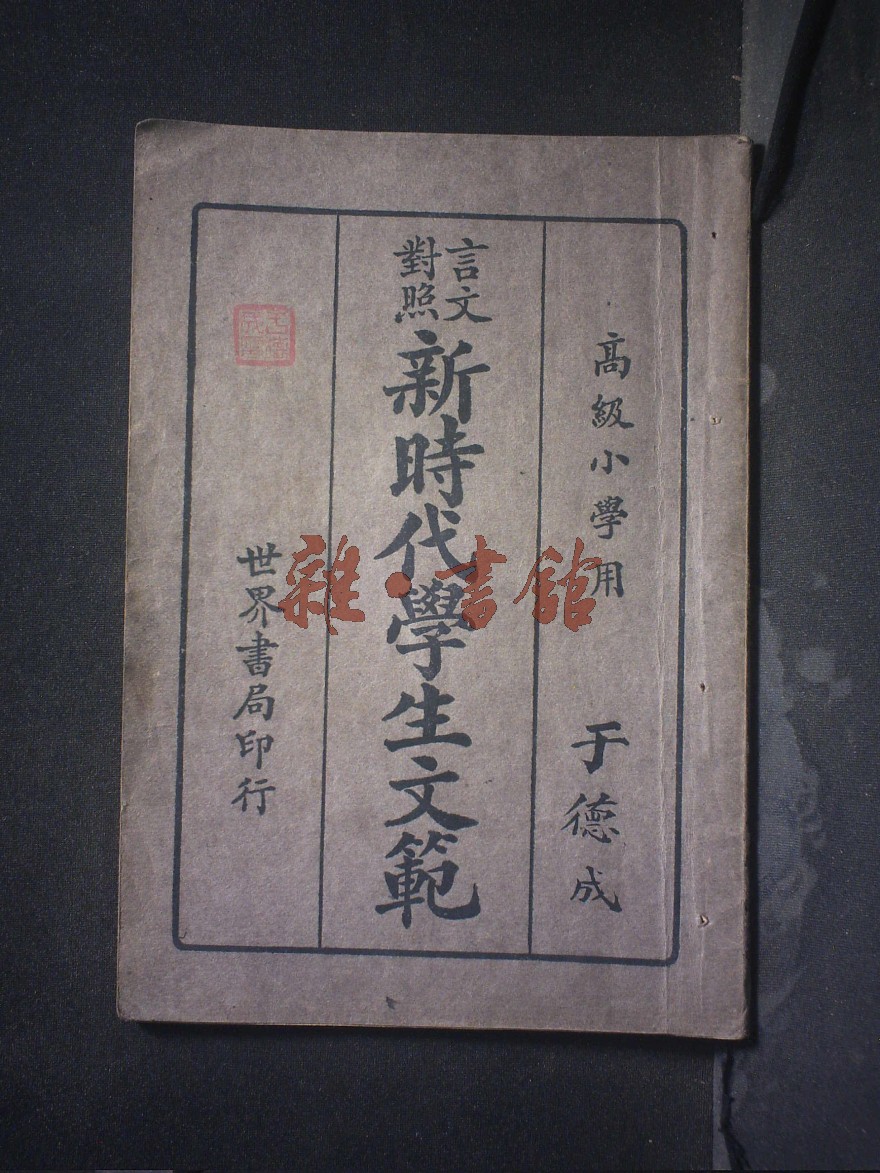 高級小學用
于德成
言文
對照
新時代學生文範
世界書局印行
雜·書館